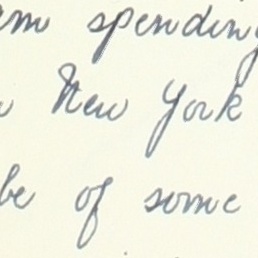 am spending
New York
be of some